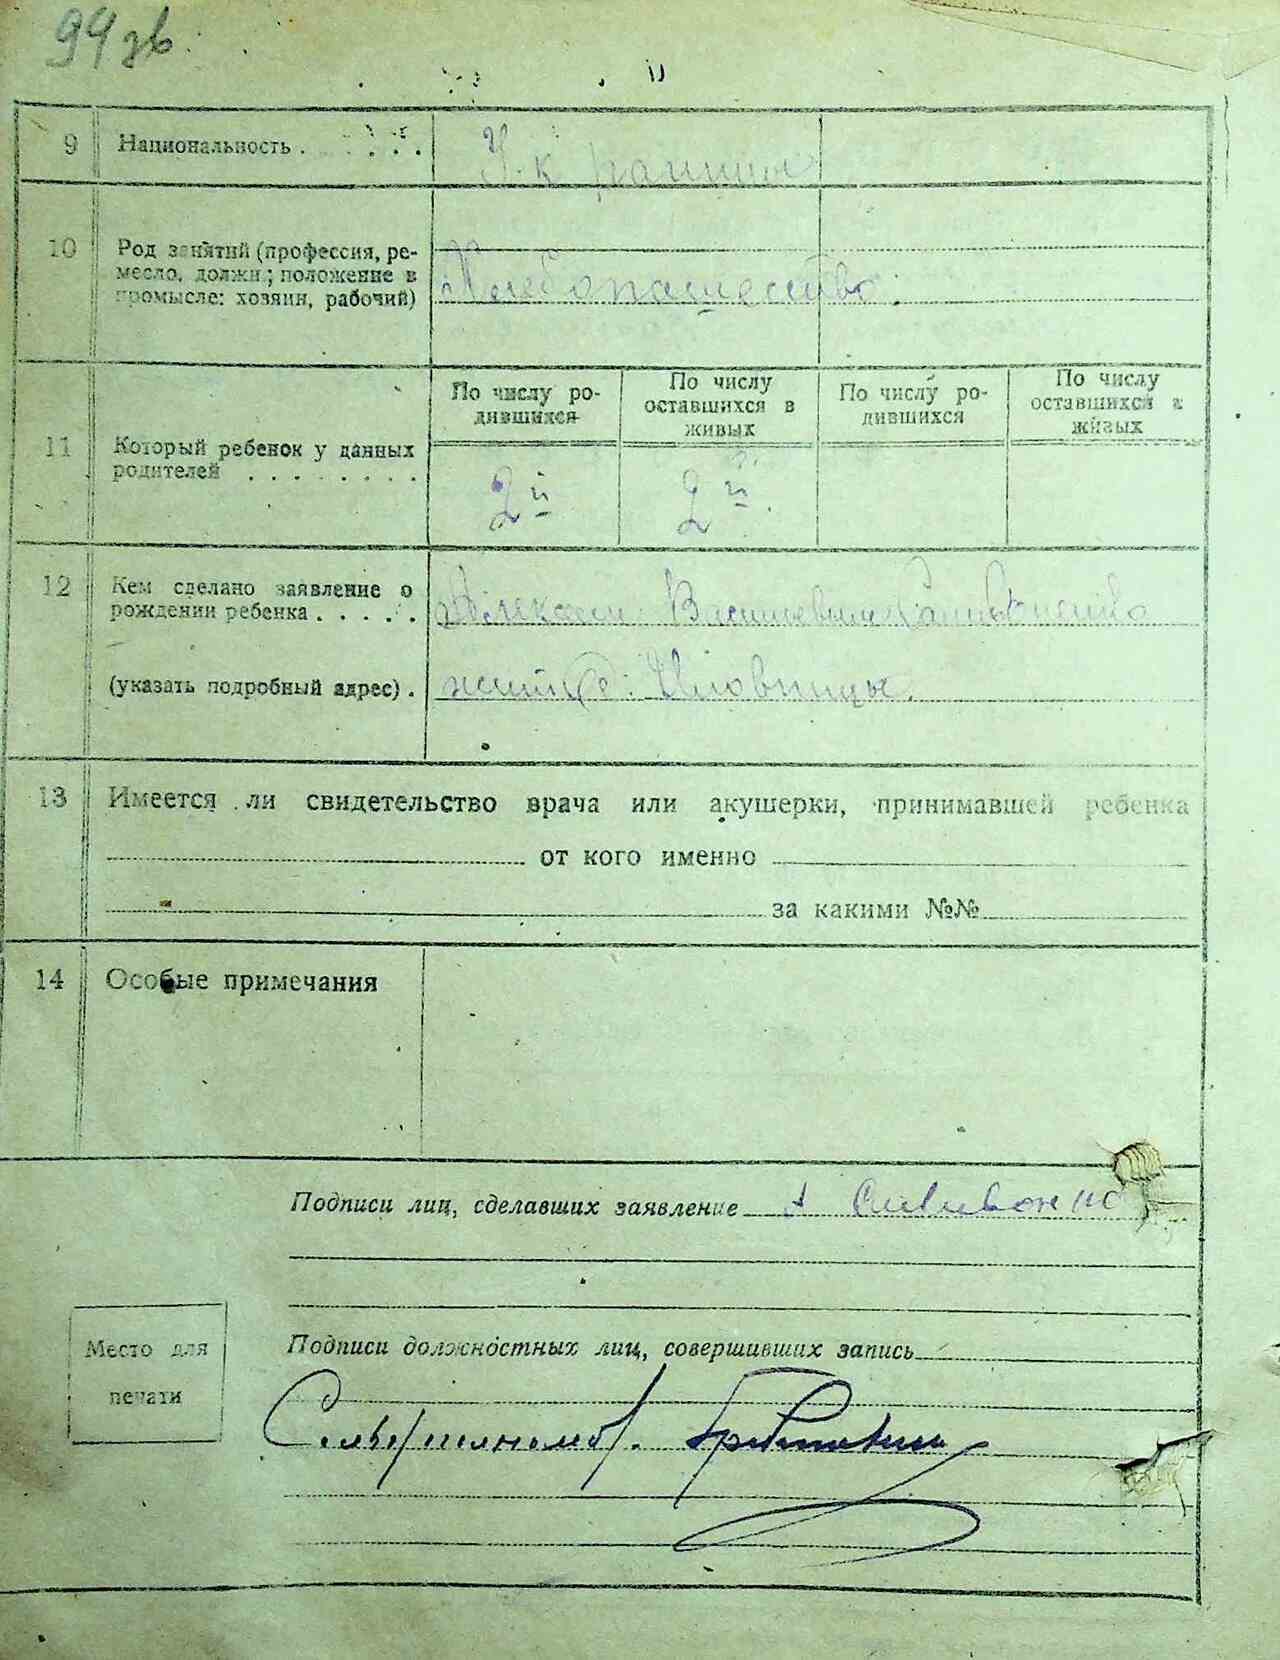 94 зв.
9 Национальность . . . . .
10 Род занятий (профессия, ре-
месло, должн.; положение в
промысле: хозяин, рабочий)
Хлебопашество.
По числу ро-
дившихся
По числу
оставшихся в
живых
По числу ро-
дившихся
По числу
оставшихся в
живых
11 Который ребенок у данных
родителей . . . . . . . .
2й 2й.
12 Кем сделано заявление о
рождении ребенка . . . . .
Васильевич
(указать подробный адрес) .
13 Имеется ли свидетельство врача или акушерки, принимавшей ребенка
от кого именно
за какими №№
14 Особые примечания
Подписи лиц, сделавших заявление
Место для
печати
Подписи должностных лиц, совершивших запись